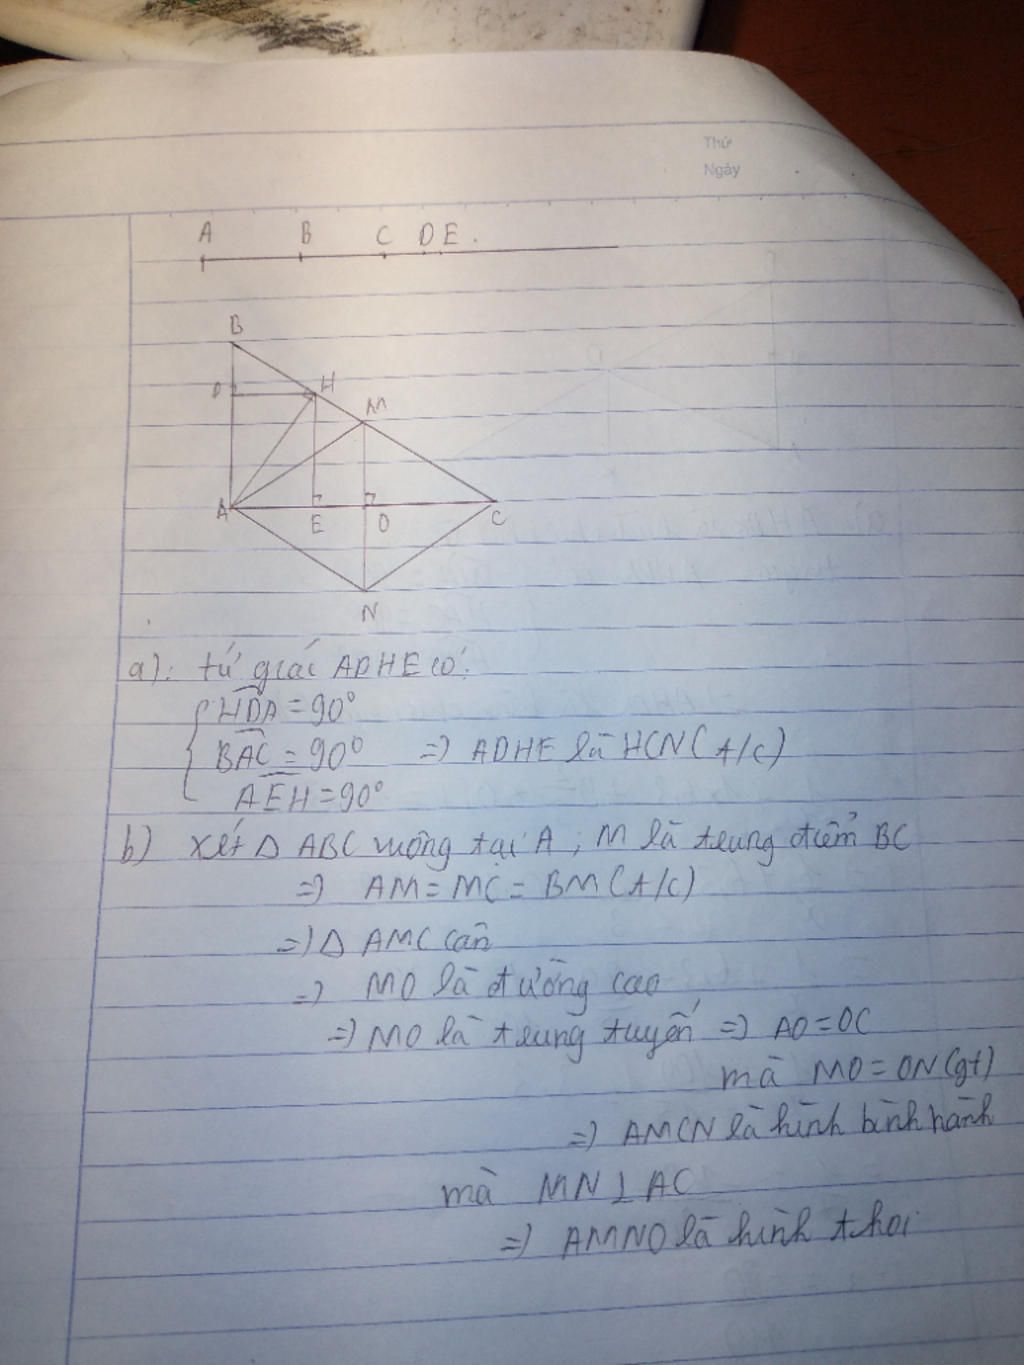 Thứ
Ngày
A B C D E .
B
D H
M
A E O C
N
a): tứ giác ADHE có:
HDA = 90°
BAC = 90° => ADHE là HCN (t/c)
AEH = 90°
b) Xét Δ ABC vuông tại A ; M là trung điểm BC
=> AM = MC = BM (t/c)
=> Δ AMC cân
=> MO là đường cao
=> MO là trung tuyến => AO = OC
mà MO = ON (gt)
=> AMCN là hình bình hành
mà MN ⊥ AC
=> AMNO là hình thoi